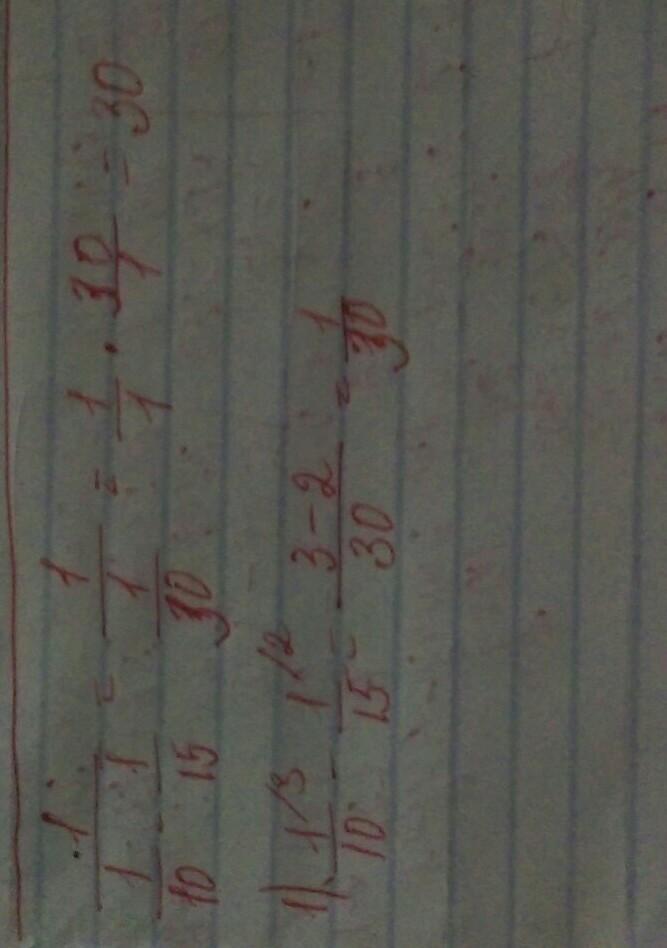 1/(1/10 - 1/15) = 1/(1/30) = 1/1 · 30/1 = 30
1) 1/3/10 - 1/2/15 = 3-2/30 = 1/30